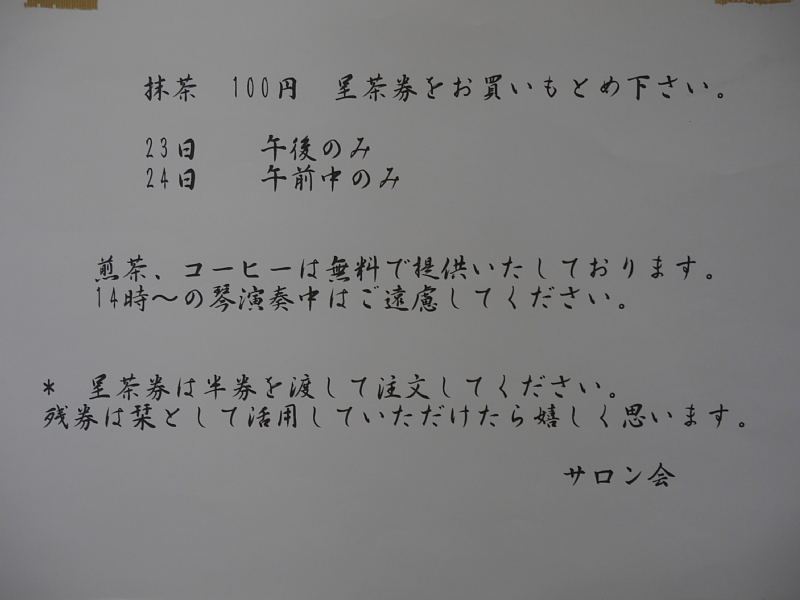 抹茶　100円　呈茶券をお買いもとめ下さい。
23日　　午後のみ
24日　　午前中のみ
煎茶、コーヒーは無料で提供いたしております。
14時～の琴演奏中はご遠慮してください。
*　呈茶券は半券を渡して注文してください。
残券は栞として活用していただけたら嬉しく思います。
サロン会